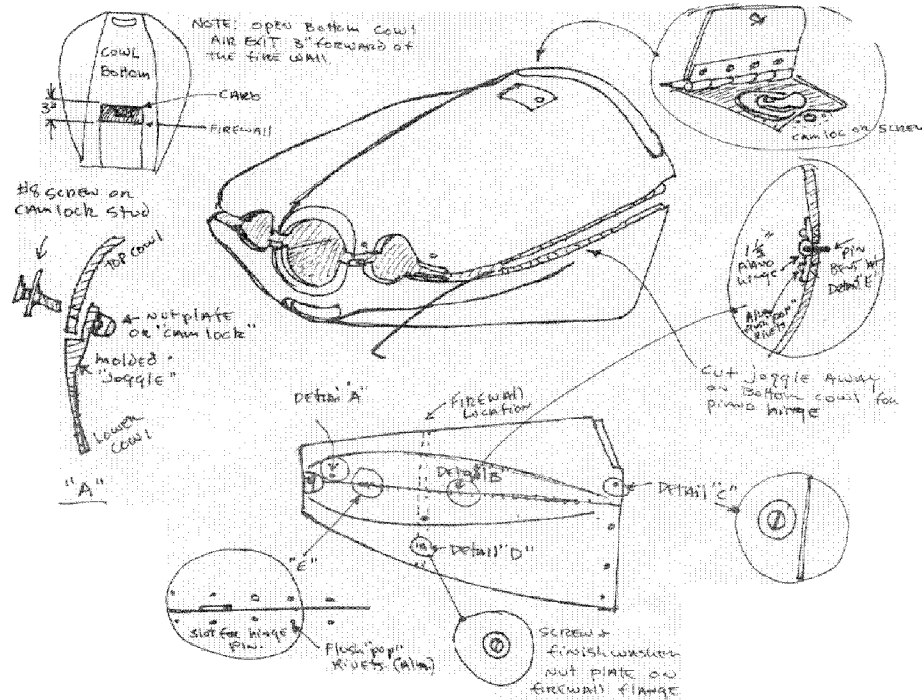 NOTE: OPEN BOTTOM COWL
AIR EXIT 3" FORWARD OF
THE FIRE WALL
COWL
BOTTOM
3"
CARB
FIREWALL
CAMLOC OR SCREW
#8 SCREW OR
CAMLOCK STUD
TOP COWL
NUTPLATE
OR "CAMLOCK"
MOLDED
"JOGGLE"
LOWER
COWL
"A"
1 1/2"
PIANO
HINGE
PIN
DETAIL "E"
"POP"
RIVETS
CUT JOGGLE AWAY
ON BOTTOM COWL FOR
PIANO HINGE
DETAIL "A"
FIREWALL
LOCATION
DETAIL "B"
DETAIL "C"
"E"
DETAIL "D"
SLOT FOR HINGE
PIN.
FLUSH "POP"
RIVETS (ALUM)
SCREW &
FINISH WASHER
NUT PLATE ON
FIREWALL FLANGE